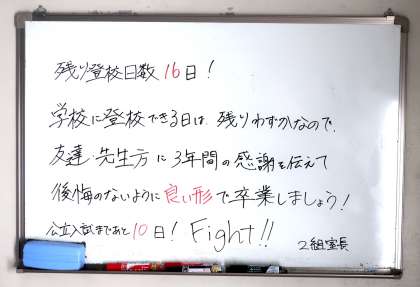 残り登校日数16日！
学校に登校できる日は、残りわずかなので、
友達・先生方に3年間の感謝を伝えて
後悔のないように良い形で卒業しましょう！
公立入試まであと10日！ Fight!!
2組室長